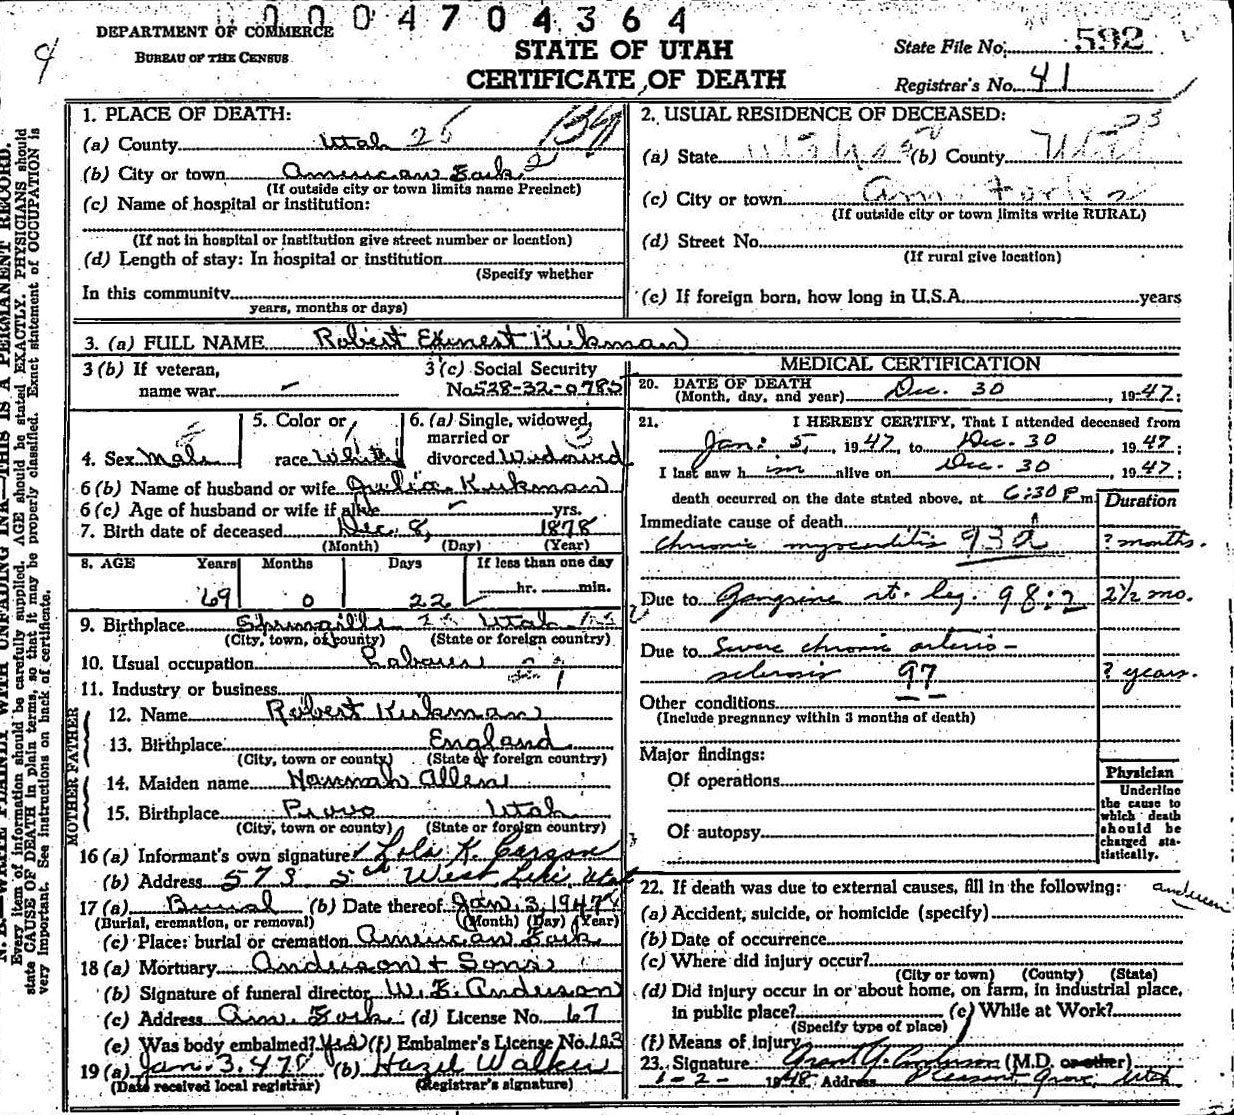 0004704364
DEPARTMENT OF COMMERCE
BUREAU OF THE CENSUS
STATE OF UTAH
CERTIFICATE OF DEATH
State File No. 592
Registrar's No. 41
1. PLACE OF DEATH:
(a) County Utah 25
(b) City or town American Fork
(If outside city or town limits name Precinct)
(c) Name of hospital or institution:
(If not in hospital or institution give street number or location)
(d) Length of stay: In hospital or institution
(Specify whether
In this community
years, months or days)
2. USUAL RESIDENCE OF DECEASED:
(a) State (b) County
(c) City or town Am. Fork
(If outside city or town limits write RURAL)
(d) Street No.
(If rural give location)
(e) If foreign born, how long in U.S.A. years
3. (a) FULL NAME Robert Kirkman
3 (b) If veteran,
name war -
3 (c) Social Security
No. 528-32-0785
4. Sex Male
5. Color or
race White
6. (a) Single, widowed,
married or
divorced Widowed
6 (b) Name of husband or wife Julia Kirkman
6 (c) Age of husband or wife if alive - yrs.
7. Birth date of deceased Dec. 8, 1878
(Month) (Day) (Year)
8. AGE Years Months Days If less than one day
69 0 22 hr. min.
9. Birthplace Springville Utah
(City, town, or county) (State or foreign country)
10. Usual occupation Laborer
11. Industry or business
FATHER
12. Name Robert Kirkman
13. Birthplace England
(City, town or county) (State or foreign country)
MOTHER
14. Maiden name Hannah Allen
15. Birthplace Provo Utah
(City, town or county) (State or foreign country)
16 (a) Informant's own signature Lola K. Carson
(b) Address 573 West Lehi, Utah
17 (a) Burial (b) Date thereof Jan. 3, 1947
(Burial, cremation, or removal) (Month) (Day) (Year)
(c) Place: burial or cremation American Fork
18 (a) Mortuary Anderson + Sons
(b) Signature of funeral director W. E. Anderson
(c) Address Am. Fork (d) License No. 67
(e) Was body embalmed? Yes (f) Embalmer's License No. 103
19 (a) Jan. 3. 478 (b) Hazel Walker
(Date received local registrar) (Registrar's signature)
MEDICAL CERTIFICATION
20. DATE OF DEATH
(Month, day, and year) Dec. 30, 1947:
21. I HEREBY CERTIFY, That I attended deceased from
Jan. 5, 1947, to Dec. 30, 1947;
I last saw him alive on Dec. 30 1947;
death occurred on the date stated above, at 6:30 P m.
Duration
Immediate cause of death
Chronic myocarditis 93d ? months.
Due to Gangrene rt. leg. 98:2 2½ mo.
Due to Severe chronic arterio-
sclerosis 97 ? years.
Other conditions
(Include pregnancy within 3 months of death)
Major findings:
Of operations
Of autopsy
Physician
Underline
the cause to
which death
should be
charged sta-
tistically.
22. If death was due to external causes, fill in the following:
(a) Accident, suicide, or homicide (specify)
(b) Date of occurrence
(c) Where did injury occur?
(City or town) (County) (State)
(d) Did injury occur in or about home, on farm, in industrial place,
in public place? (e) While at Work?
(Specify type of place)
(f) Means of injury
23. Signature Grant Y. Anderson (M.D. or other)
1-2- 1948, Address Pleasant Grove, Utah
N. B.—WRITE PLAINLY WITH UNFADING INK—THIS IS A PERMANENT RECORD.
Every item of information should be carefully supplied. AGE should be stated EXACTLY. PHYSICIANS should
state CAUSE OF DEATH in plain terms, so that it may be properly classified. Exact statement of OCCUPATION is
very important. See instructions on back of certificate.